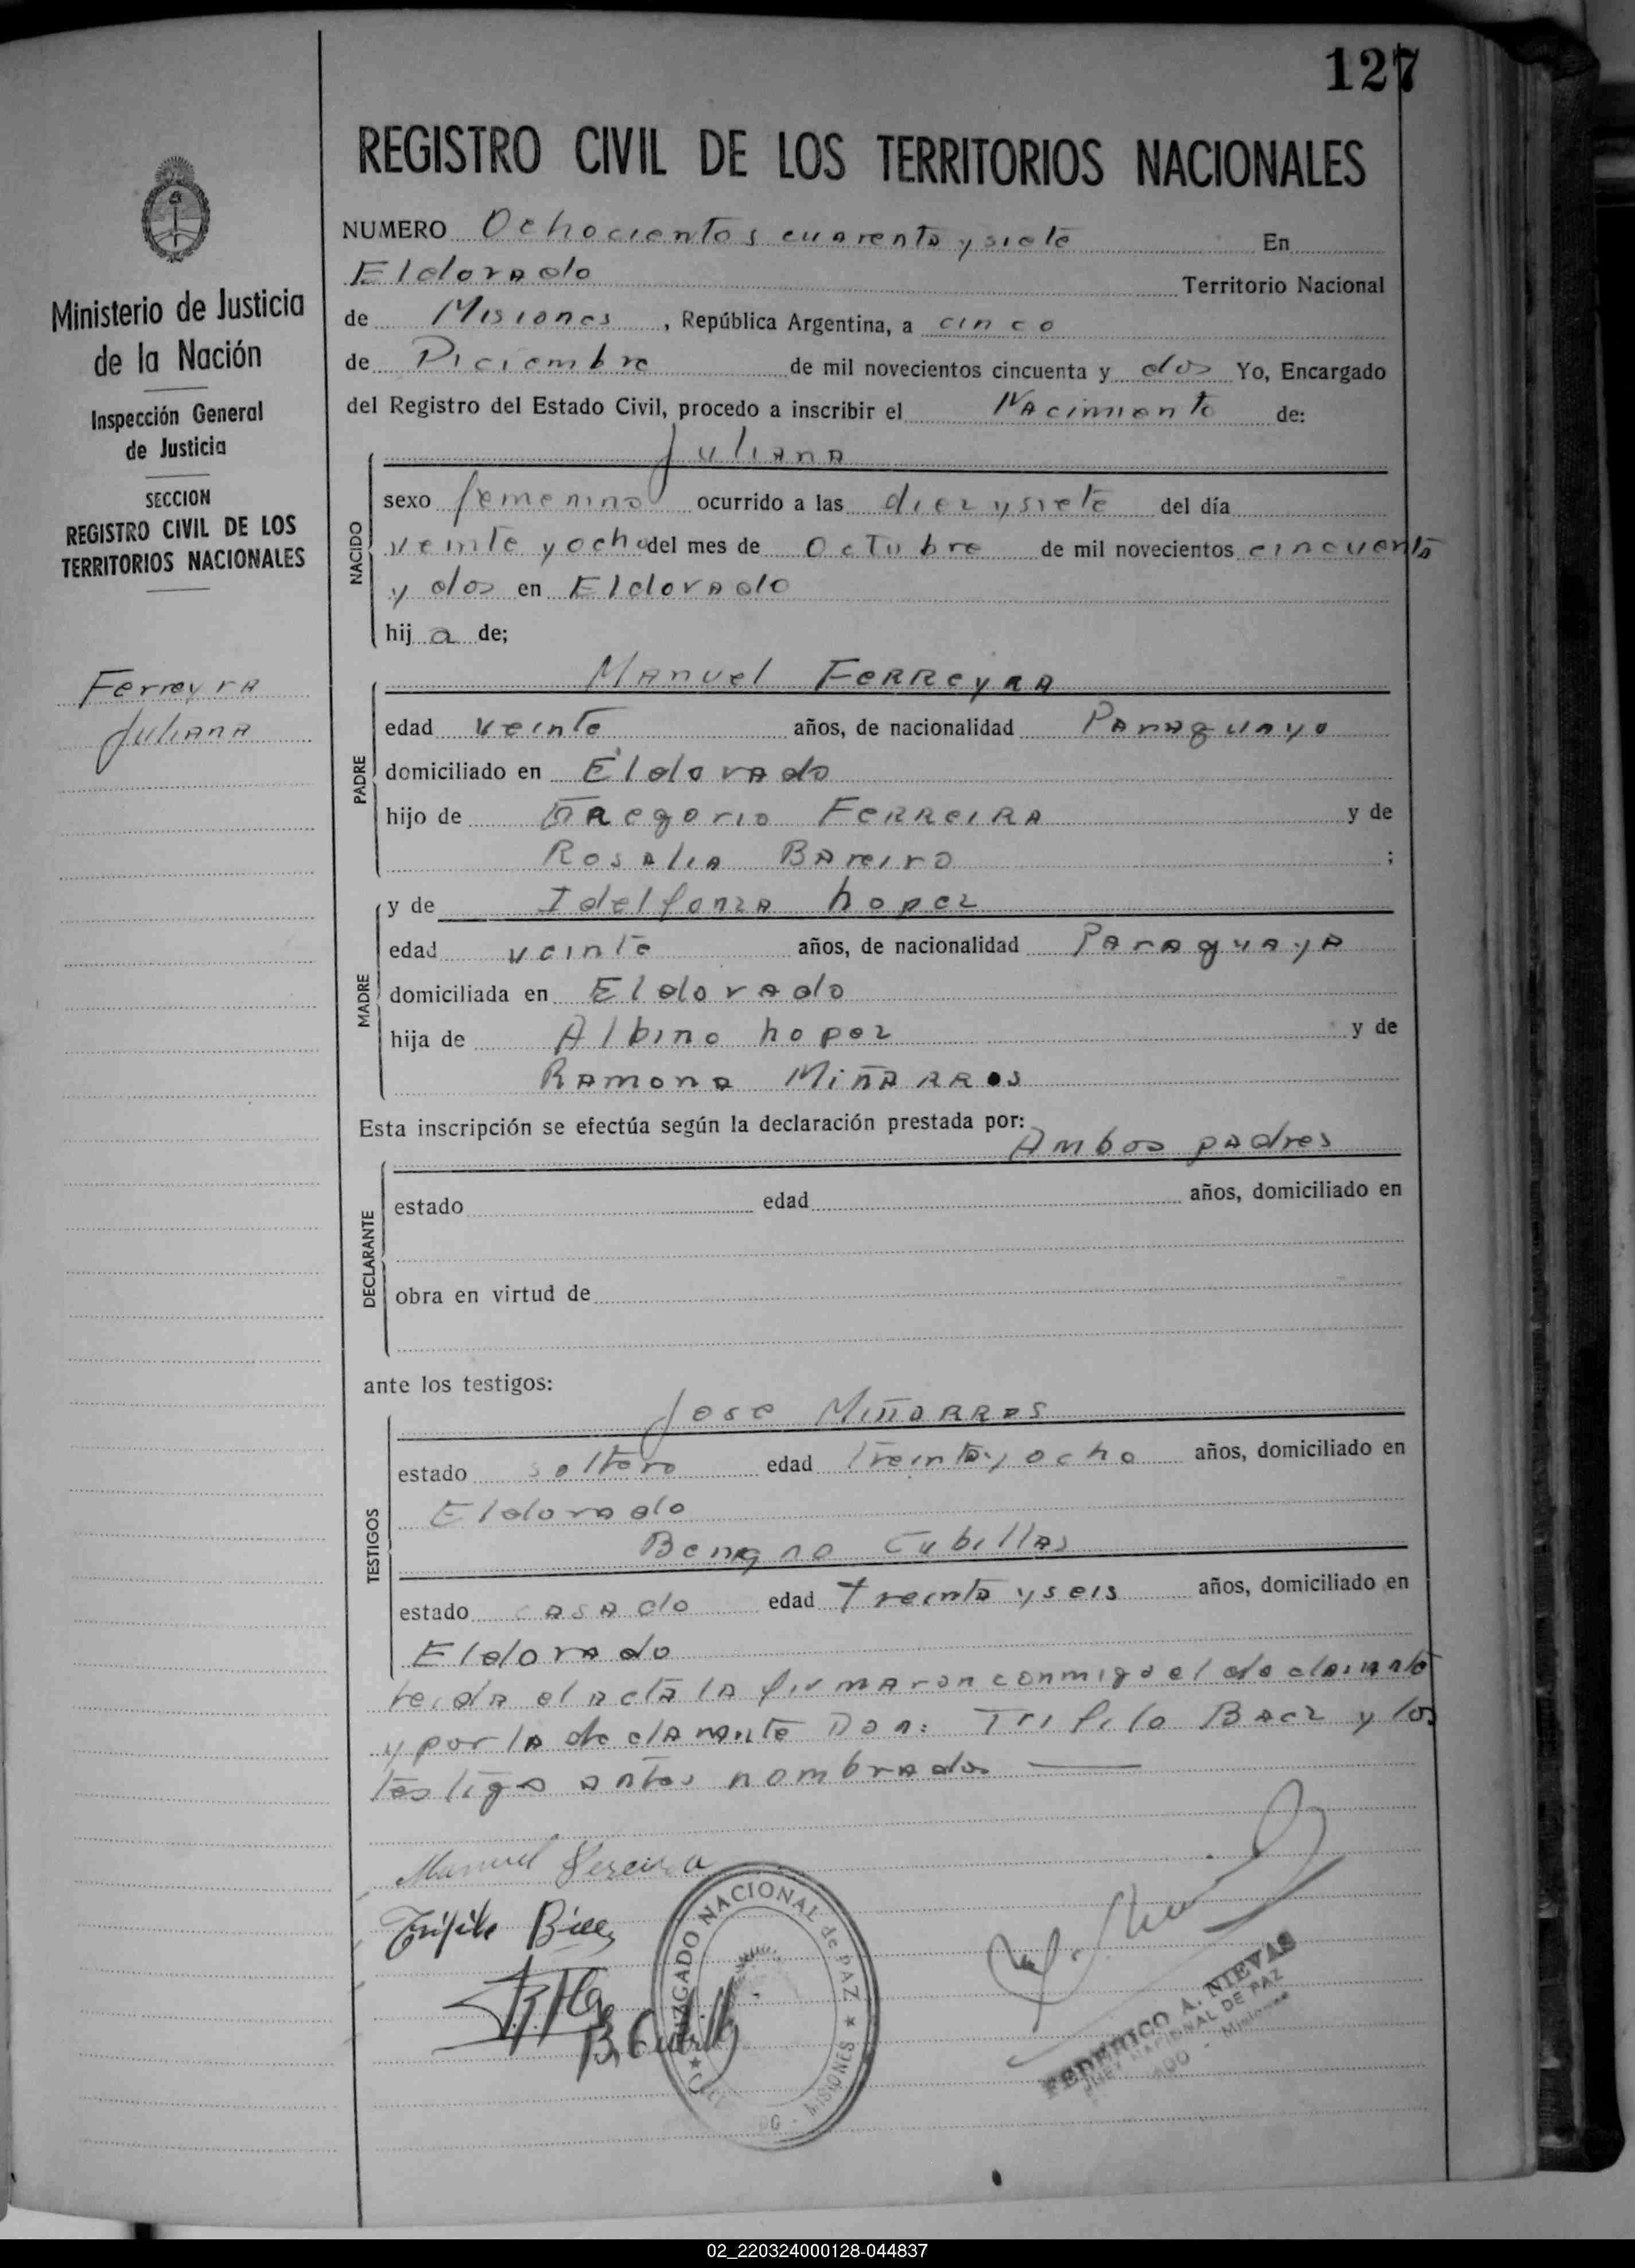 127
REGISTRO CIVIL DE LOS TERRITORIOS NACIONALES
Ministerio de Justicia
de la Nación
Inspección General
de Justicia
SECCION
REGISTRO CIVIL DE LOS
TERRITORIOS NACIONALES
Ferreyra
Juliana
NUMERO Ochocientos cuarenta y siete En
Eldorado Territorio Nacional
de Misiones, República Argentina, a cinco
de Diciembre de mil novecientos cincuenta y dos Yo, Encargado
del Registro del Estado Civil, procedo a inscribir el Nacimiento de:
Juliana
NACIDO
sexo femenino ocurrido a las diez y siete del día
veinte y ocho del mes de Octubre de mil novecientos cincuenta
y dos en Eldorado
hij a de;
Manuel Ferreyra
PADRE
edad veinte años, de nacionalidad Paraguayo
domiciliado en Eldorado
hijo de Gregorio Ferreira y de
Rosalia Bareiro ;
y de Idelfonza Lopez
MADRE
edad veinte años, de nacionalidad Paraguaya
domiciliada en Eldorado
hija de Albino Lopez y de
Ramona Miñarros
Esta inscripción se efectúa según la declaración prestada por:
Ambos padres
DECLARANTE
estado edad años, domiciliado en
obra en virtud de
ante los testigos:
Jose Miñarros
TESTIGOS
estado soltero edad treinta y ocho años, domiciliado en
Eldorado
Benigno Cubillas
estado casado edad treinta y seis años, domiciliado en
Eldorado
Leida el acta la firmaron conmigo el declarante
y por la declarante Don: Trifilo Baez y los
testigo antes nombrados
Manuel Fereira
Trifilo Baez
B. Cubillas
JUZGADO NACIONAL de PAZ ★ MISIONES
FEDERICO A. NIEVAS
JUEZ NACIONAL DE PAZ
Misiones
02_220324000128-044837